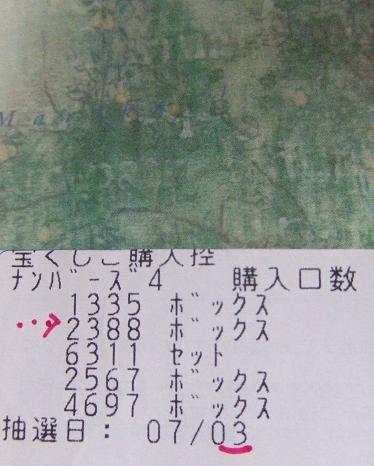 宝くじご購入控
ナンバーズ4 購入口数
1335 ボックス
2388 ボックス
6311 セット
2567 ボックス
4697 ボックス
抽選日: 07/03